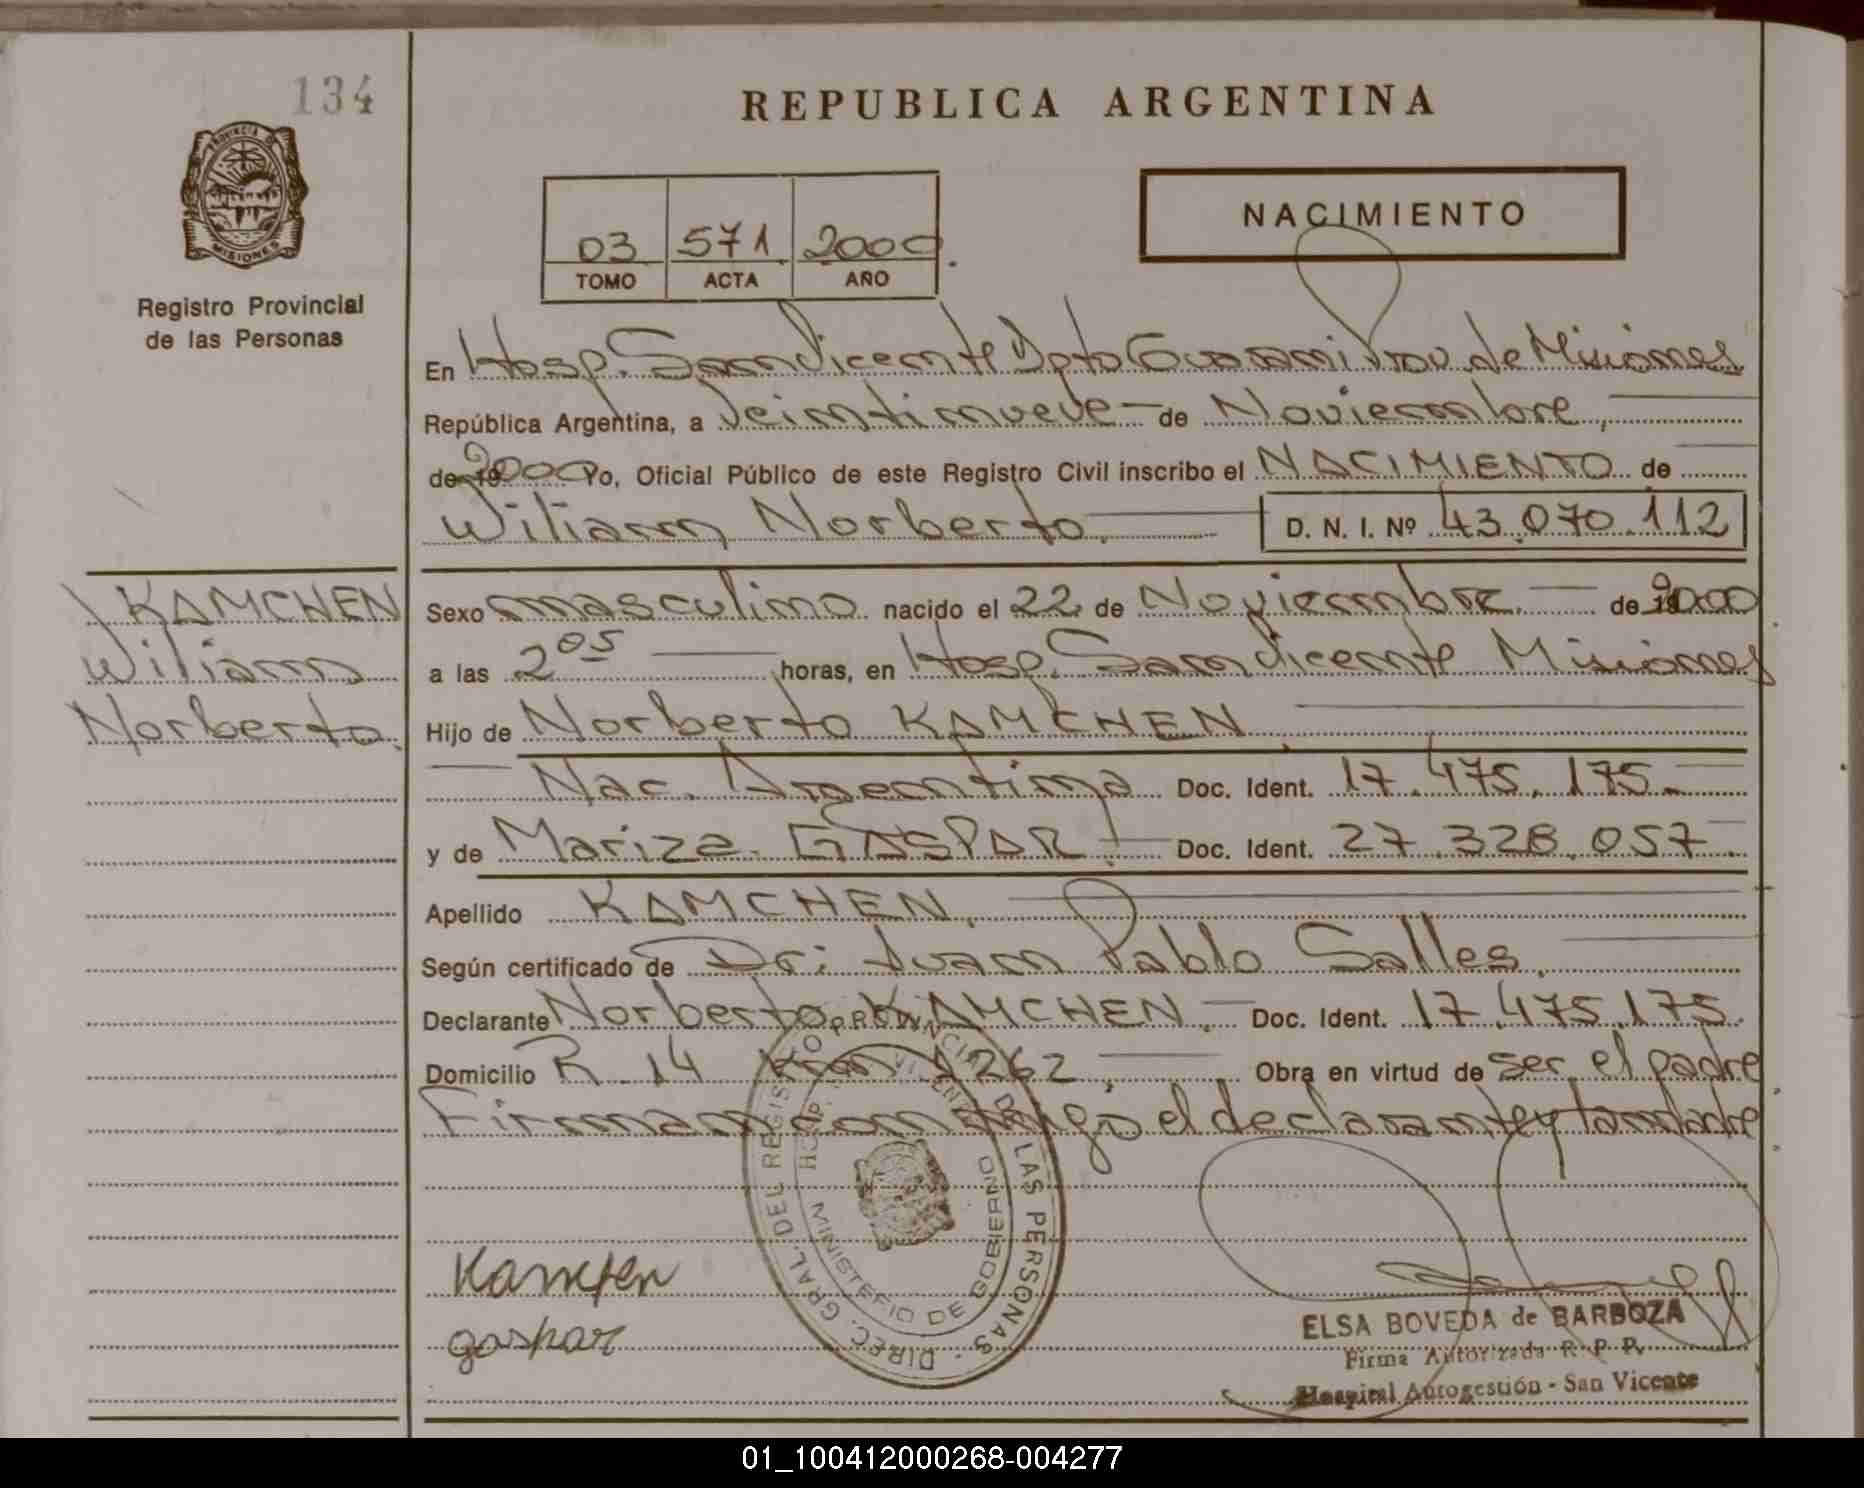 134
REPUBLICA ARGENTINA
PROVINCIA DE
MISIONES
Registro Provincial
de las Personas
03 571 2000
TOMO ACTA AÑO
NACIMIENTO
En Hosp. San Vicente Dpto Guarani Prov. de Misiones
República Argentina, a veintinueve de Noviembre,
de 2000 Yo, Oficial Público de este Registro Civil inscribo el NACIMIENTO de
Wiliam Norberto. D. N. I. Nº 43.070.112
KAMCHEN
Wiliam
Norberto.
Sexo masculino nacido el 22 de Noviembre de 2000
a las 2 05 horas, en Hosp. San Vicente Misiones
Hijo de Norberto KAMCHEN
Nac. Argentina Doc. Ident. 17.475.175.
y de Mariza GASPAR Doc. Ident. 27.328.057.
Apellido KAMCHEN.
Según certificado de Dr: Juan Pablo Salles.
Declarante Norberto KAMCHEN. Doc. Ident. 17.475.175.
Domicilio R. 14 Km 1262, Obra en virtud de ser el padre
Firman conmigo el declarante y
DIREC. GRAL. DEL REGISTRO PROVINCIAL DE LAS PERSONAS
HOSP. S. VICENTE
MINISTERIO DE GOBIERNO
Kamjen
gaspar
ELSA BOVEDA de BARBOZA
Firma Autorizada R. P. P.
Hospital Autogestión - San Vicente
01_100412000268-004277